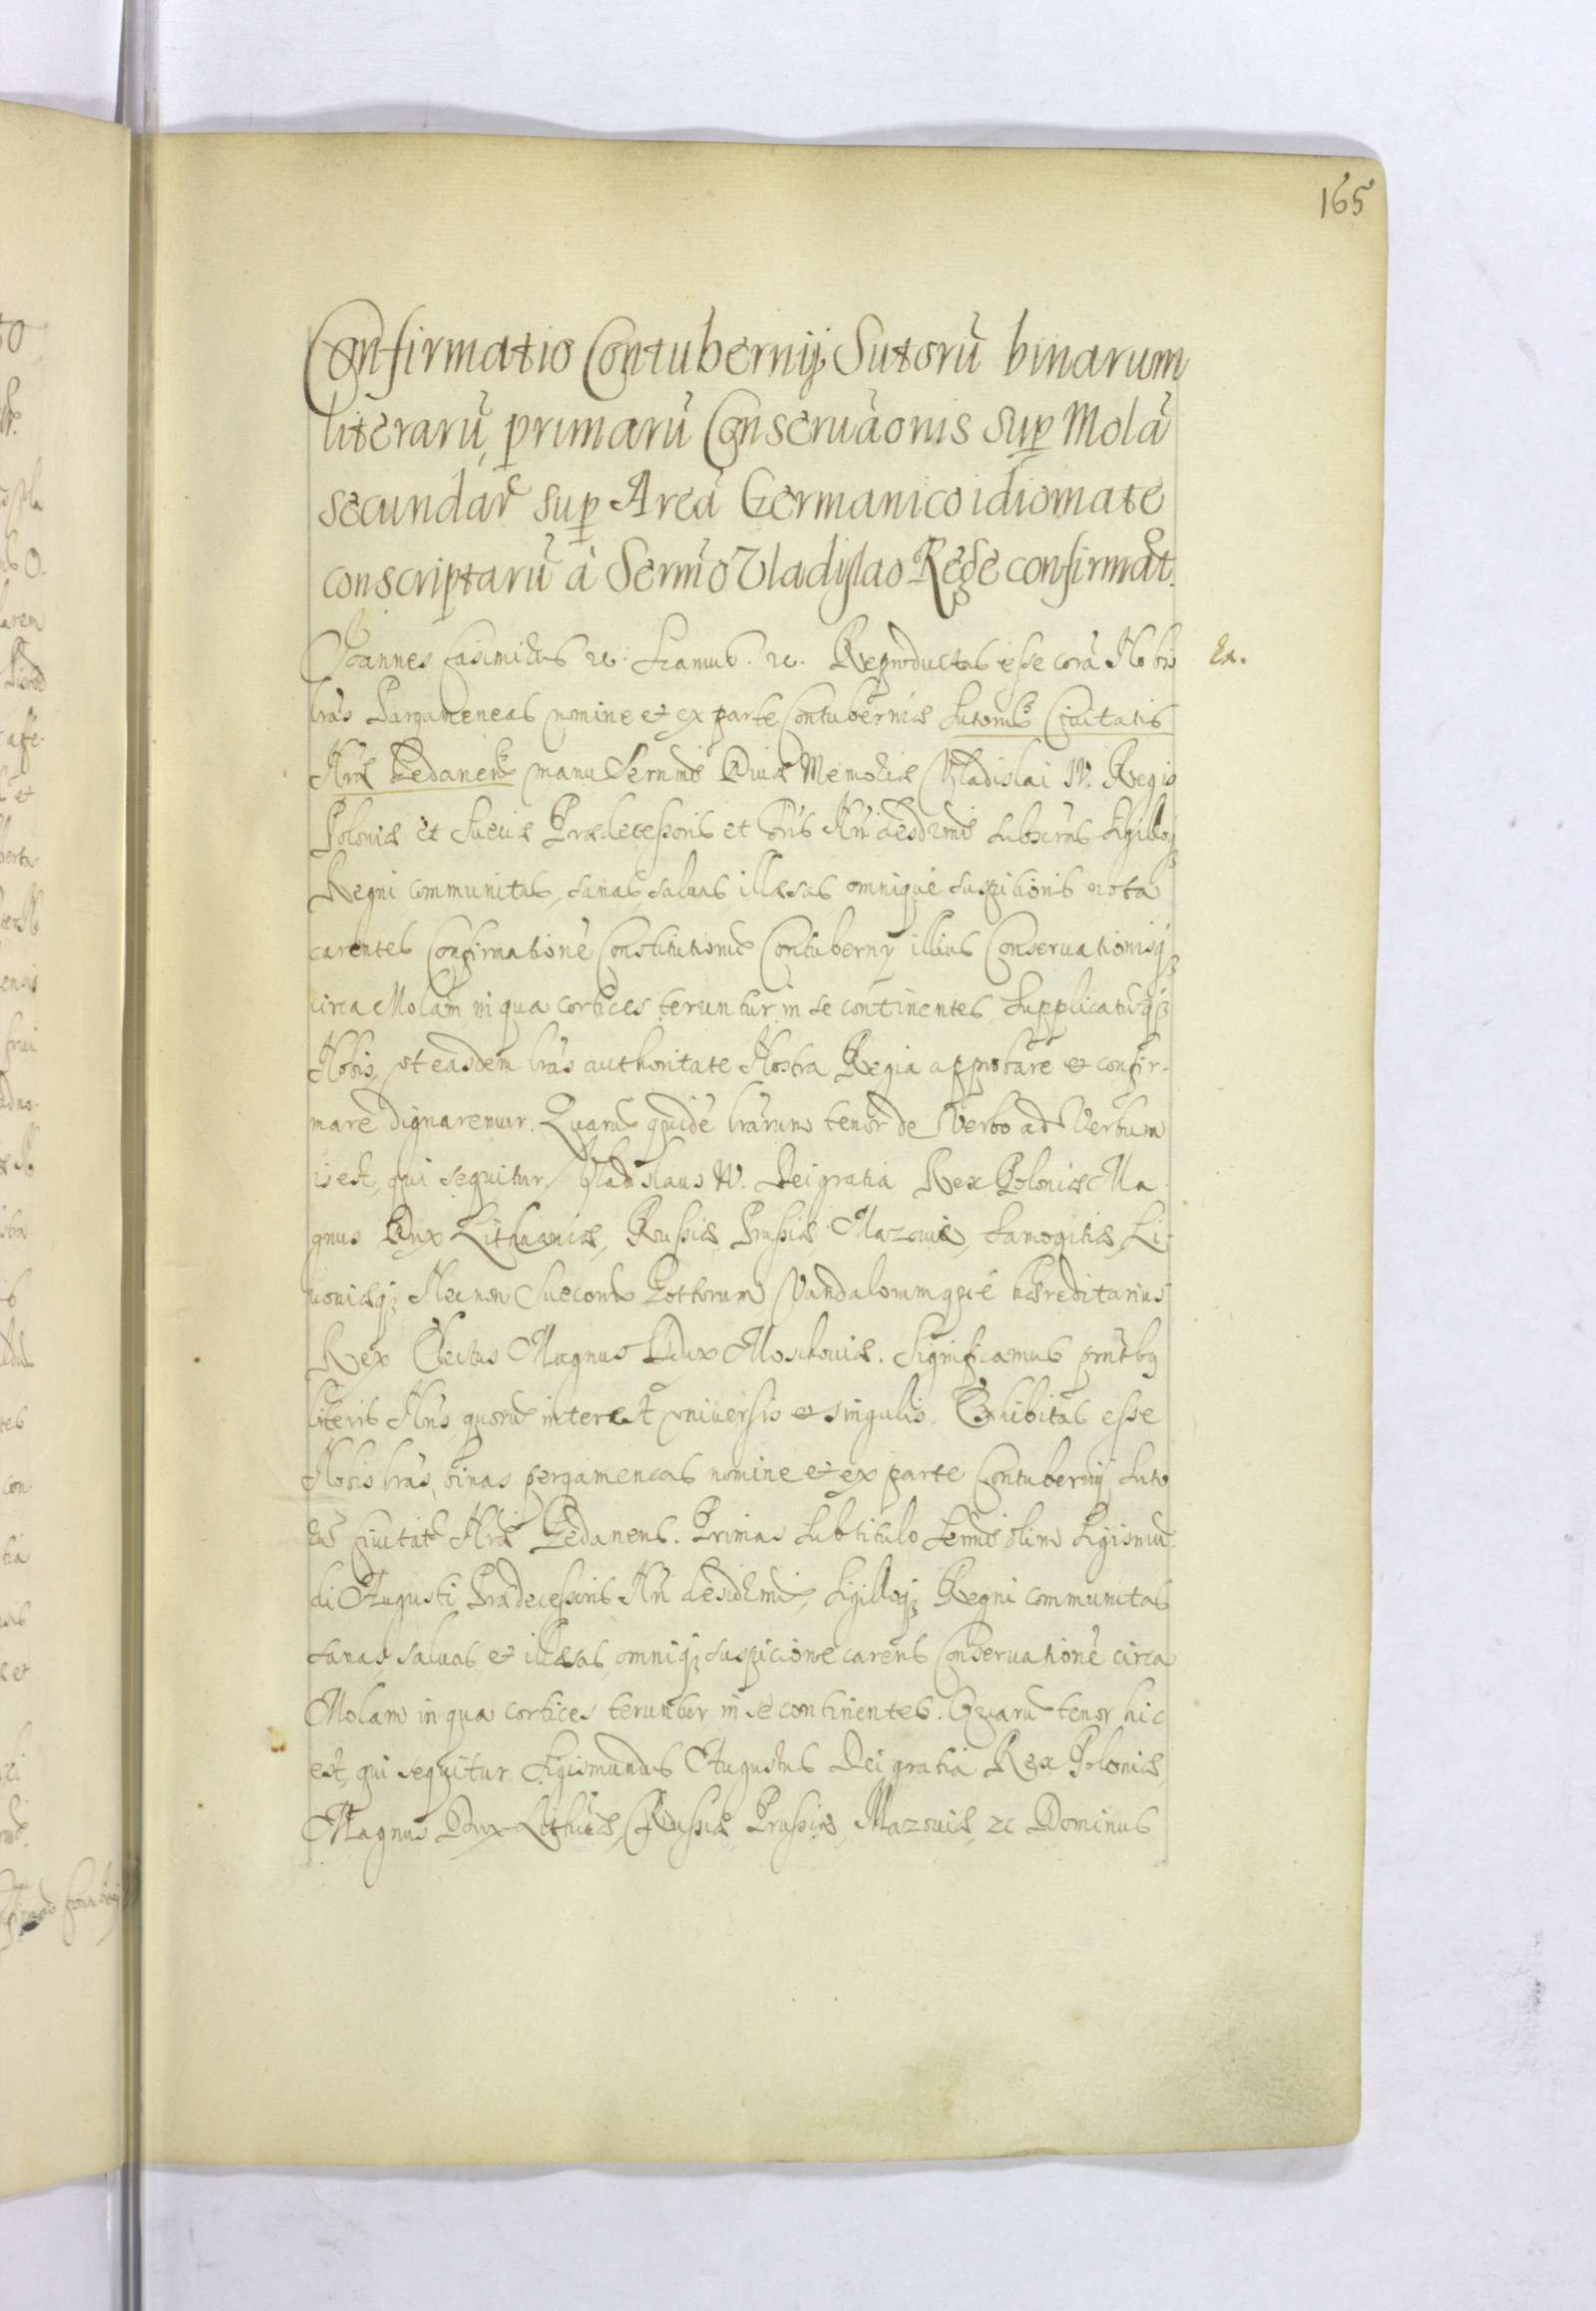 165
Confirmatio Contubernij Sutorũ binarum
literarũ, primarũ Conseruãonis sup Molã
secundar sup Areã Germanico idiomate
conscriptarũ à Sermo Vladislao Rege confirmat.
Joannes Casimirus etc. Scamus. etc. Reproductas esse corã Nobis
lras Pargameneas nomine et ex parte Contuberniæ Sutorũ Ciuitatis
Nræ Gedanen manu Sernmi Diuæ Memoriæ Vladislai IV. Regis
Poloniæ et Sueciæ Prædecessoris et Fris Nri desdmi subscras Sigilloq;
Regni communitas, sanas saluas illæsas omnique suspitionis nota
carentes Confirmationẽ Constitutionũ Contuberny illius Conseruationisq;
circa Molam in qua cortices teruntur in se continentes Supplicatũq;
Nobis, vt easdem lras authoritate Nostra Regia approbare et confir-
mare dignaremur. Quarũ quidẽ lrarum tenor de Verbo ad Verbum
is est, qui sequitur. Vladislaus IV. Dei gratia Rex Poloniæ Ma-
gnus Dux Lithuaniæ, Russiæ Prussiæ Mazouiæ, Samogitiæ Li-
uoniæq; Necnon Suecorũ Gottorum Vandalorumque hæreditarius
Rex Electus Magnus Dux Moschouiæ. Significamus prntbq
literis Nris quorũ interest vniuersis et singulis. Exhibitas esse
Nobis lras binas pergameneas nomine et ex parte Contubernij Suto
rũ Ciuitat Nræ Gedanens. Primas sub titulo Sermi olim Sigismũ
di Augusti Prædecessoris Nri desidmi, Sigilloq; Regni communitas
sanas, saluas, et illæsas, omniq; suspicione carens Conseruationẽ circa
Molam in qua cortices teruntur in se continentes. Quarũ tenor hic
est, qui sequitur. Sigismundus Augustus Dei gratia Rex Poloniæ,
Magnus Dux Lithuæ, Russiæ Prussiæ, Mazouiæ, etc Dominus